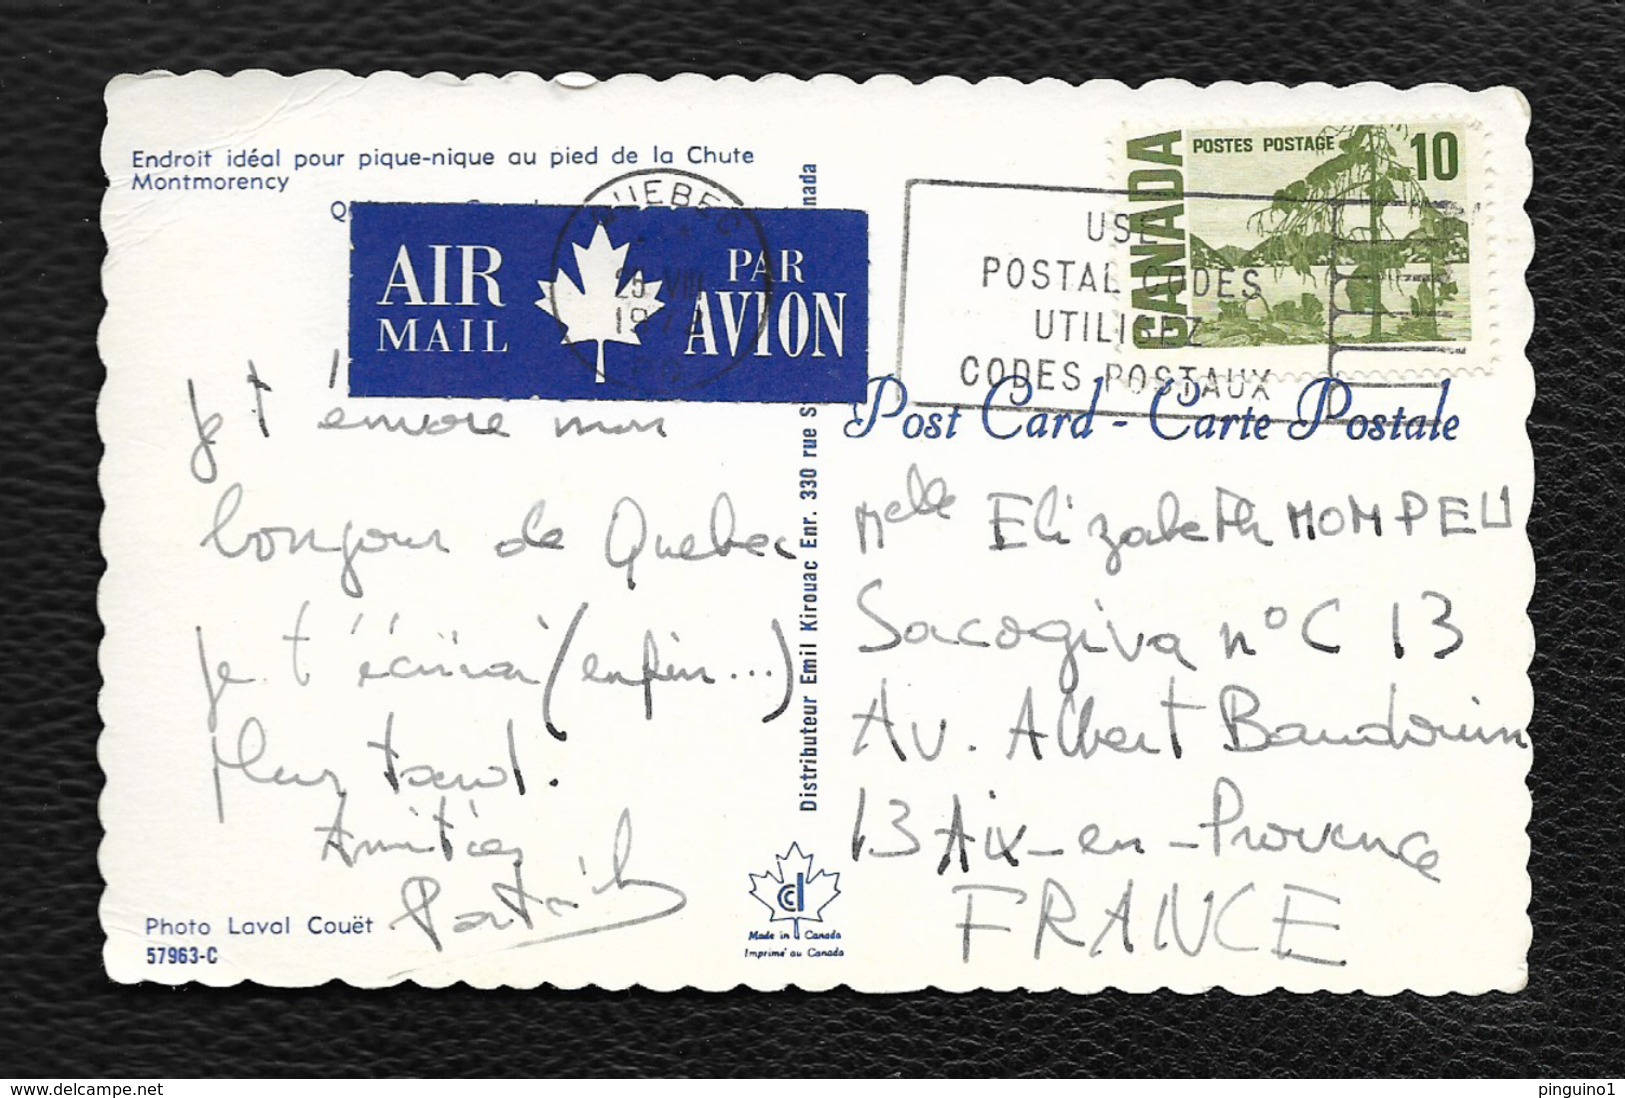 Endroit idéal pour pique-nique au pied de la Chute
Montmorency
AIR
MAIL
PAR
AVION
QUEBEC
1973
CANADA
POSTES POSTAGE
10
USE
POSTAL CODES
UTILISEZ
CODES POSTAUX
Post Card - Carte Postale
Je t'envoie mon
bonjour de Quebec
je t'écrirai (enfin...)
plus tard.
Amitiés
Patrick
Melle Elizabeth MOMPEU
Sacogiva n° C 13
Av. Albert Baudouin
13 Aix-en-Provence
FRANCE
Distributeur Emil Kirouac Enr. 330 rue
Photo Laval Couët
57963-C
Made in Canada
Imprimé au Canada
delcampe.net
pinguino1